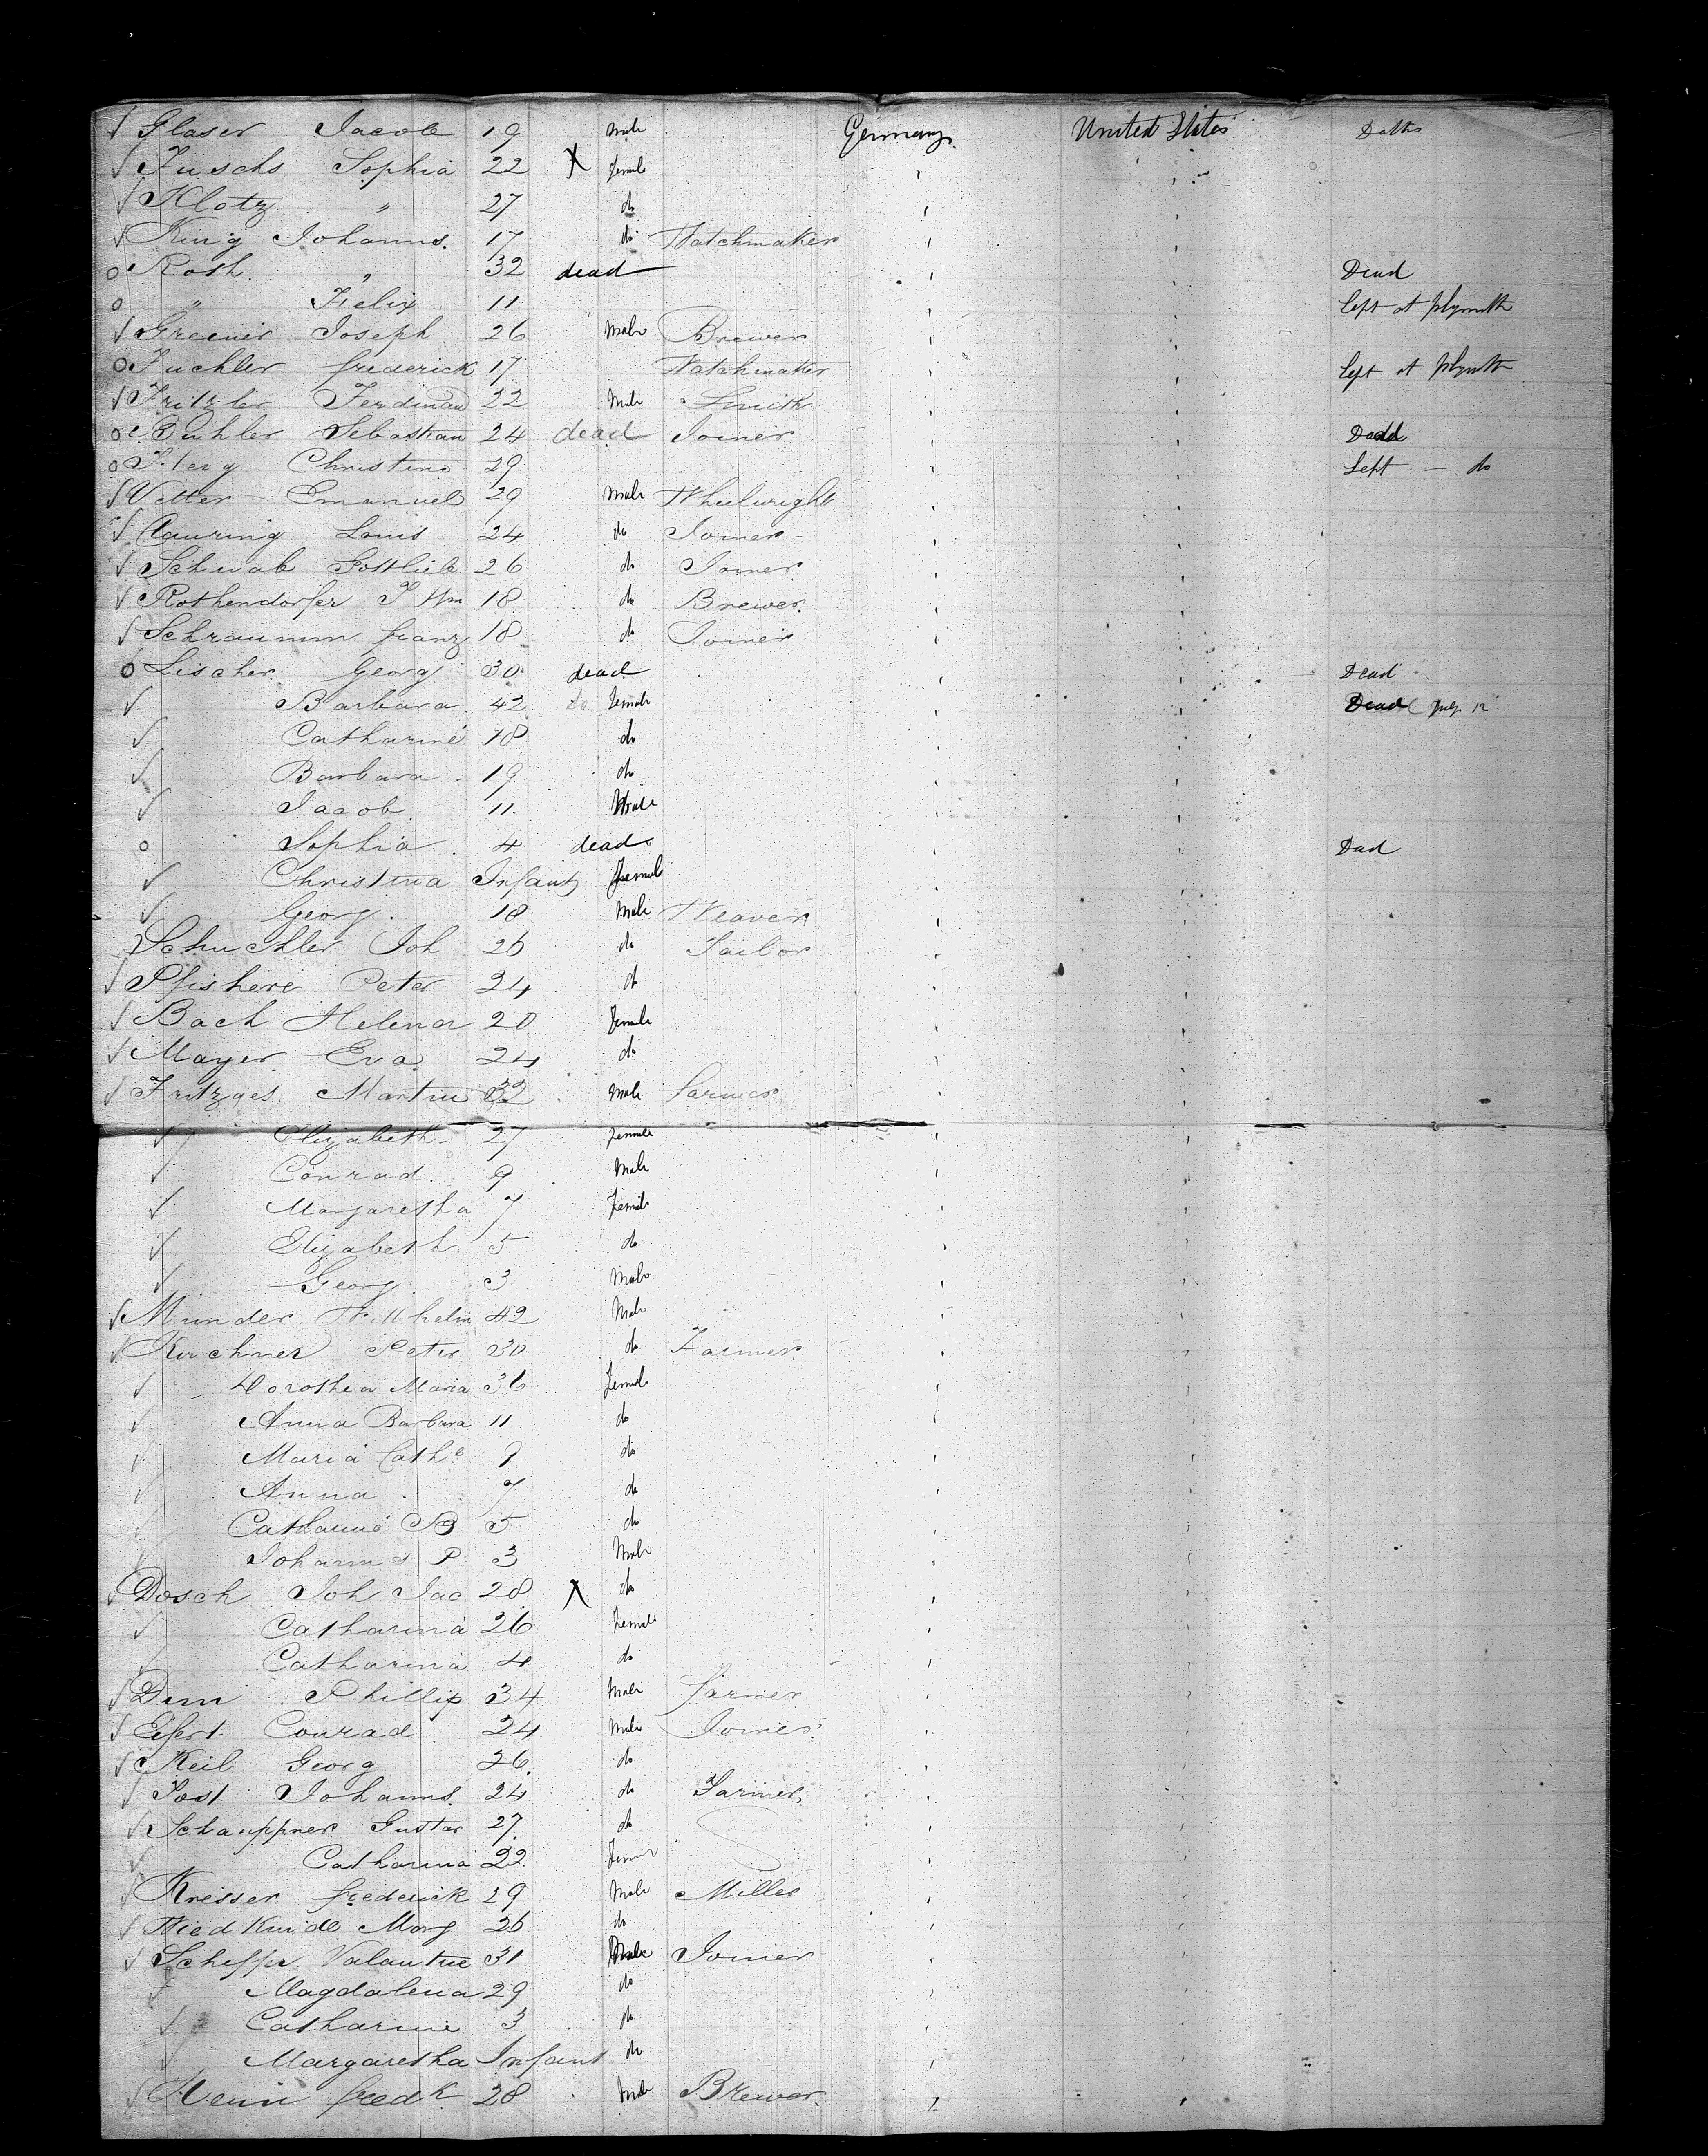 √ Glaser Jacob 19 Male Germany United States Deaths
√ Fuschs Sophia 22 X Female
√ Klotz " 27 do
√ King Johanns. 17 do Watchmaker
o Roth " 32 dead Dead
o " Felix 11 Left at Plymth
√ Greener Joseph 26 Male Brewer
o Fuchler frederick 17 Watchmatter Left at Plymth
√ Fritzler Ferdinan 22 Male Smith
o Buhler Sebastian 24 dead Joiner Dead
o Christine 29 Left — do
√ Vetter Emanuel 29 Male Wheelwright
√ Louis 24 do Joiner
√ Schwab Gottlieb 26 do Joiner
√ Rothendorfer J Wm 18 do Brewer
√ Schraumm franz 18 do Joiner
o Lischer Georg 30 dead Dead
√ Barbara 42 do Female Dead July 12
√ Catharine 18 do
√ Barbara 19 do
√ Jacob 11 Male
o Sophia 4 dead Dead
√ Christina Infant Female
√ Georg 18 Male Weaver
Schuchler Joh 26 do Tailor
√ Pfishere Peter 24 do
√ Bach Helena 20 Female
√ Mayer Eva 24 do
√ Fritzges Martin 32 Male farmer
√ Elizabeth 27 Female
√ Conrad 9 Male
√ Margaretha 7 Female
√ Elizabeth 5 do
√ Georg 3 Male
√ Munder Willhelm 42 Male
√ Kirchner Peter 30 do Farmer
√ Dorothea Maria 36 Female
√ Anna Barbara 11 do
√ Maria Cathe 9 do
√ Anna 7 do
√ Catharine B 5 do
√ Johanns P 3 Male
√ Dosch Joh Jac 28 X do
√ Catharina 26 Female
√ Catharina 4 do
√ Phillip 34 Male farmer
√ Conrad 24 Male Joiner
√ Keil Georg 26 do
√ Post Johanns. 24 do Farmer
√ Schauppner Gustav 27 do
√ Catharina 22 Female
√ Kresser frederick 29 Male Miller
√ Wiedkinde Marg 26 do
√ Scheffer Valantine 31 Male Joiner
√ Magdalena 29 do
√ Catharine 3 do
√ Margaretha Infant do
√ Henn fredk 28 Male Brewer